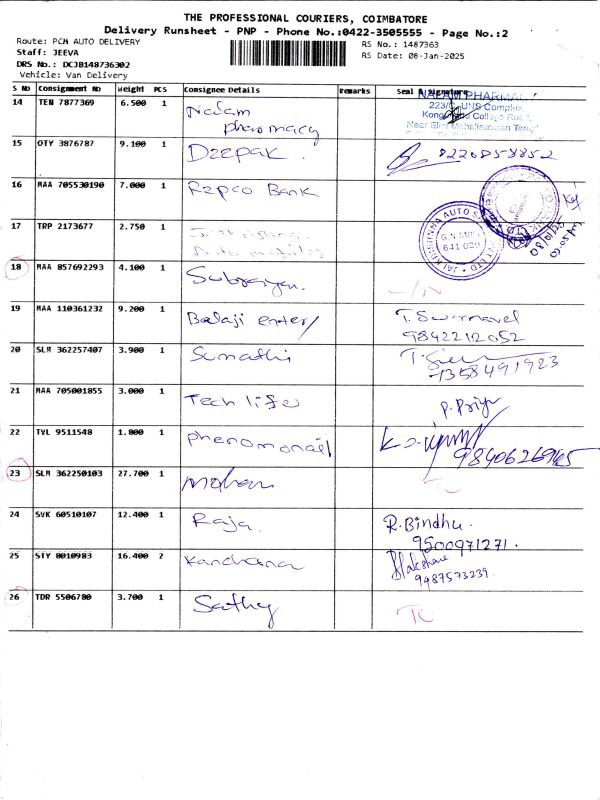 THE PROFESSIONAL COURIERS, COIMBATORE
Delivery Runsheet - PNP - Phone No.:0422-3505555 - Page No.:2
Route: PCM AUTO DELIVERY
Staff: JEEVA
DRS No.: DCJB148736302
Vehicle: Van Delivery
RS No.: 1487363
RS Date: 08-Jan-2025
S No Consignment No Weight PCS Consignee Details Remarks Seal & Signature
14 TEN 7877369 6.500 1 Nalam pharmacy
NALAM PHARMACY
223/ UNS Complex,
15 OTY 3876787 9.100 1 Deepak.
16 MAA 705530190 7.000 1 Repco Bank
17 TRP 2173677 2.750 1
JAI KRISHNNA AUTO
641 020
18 MAA 857692293 4.100 1
19 MAA 110361232 9.200 1 Balaji enter/ T.
9842212052
20 SLM 362257407 3.900 1 Sumathi
21 MAA 705001855 3.000 1 Tech life P. Priya
22 TVL 9511548 1.800 1
23 SLM 362250103 27.700 1 Mohan TC
24 SVK 60510107 12.400 1 Raja. R. Bindhu.
9500971271.
25 STY 8010983 16.400 2 Kanchana
9487573239
26 TDR 5506780 3.700 1 Sathy TC